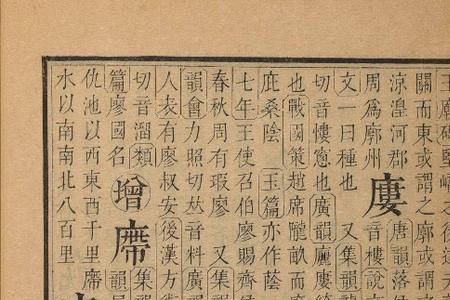 關而東或謂之廓或謂
涼湟河郡
周爲廓州
廔
唐韻落
音樓說
文一曰種也 又集韻
切音慺窓也廣韻廲廔
也戰國策趙席隴畝而
庇桑陰 玉篇亦作蔭
七年王使召伯廖賜齊
春秋周有瑕廖 又集
韻會力照切𠀤音料廣
人表有廖叔安後漢方
切音溜類
篇廖國名
增
廗
集韻
韻
仇池以西東西千里廗
水以南南北八百里